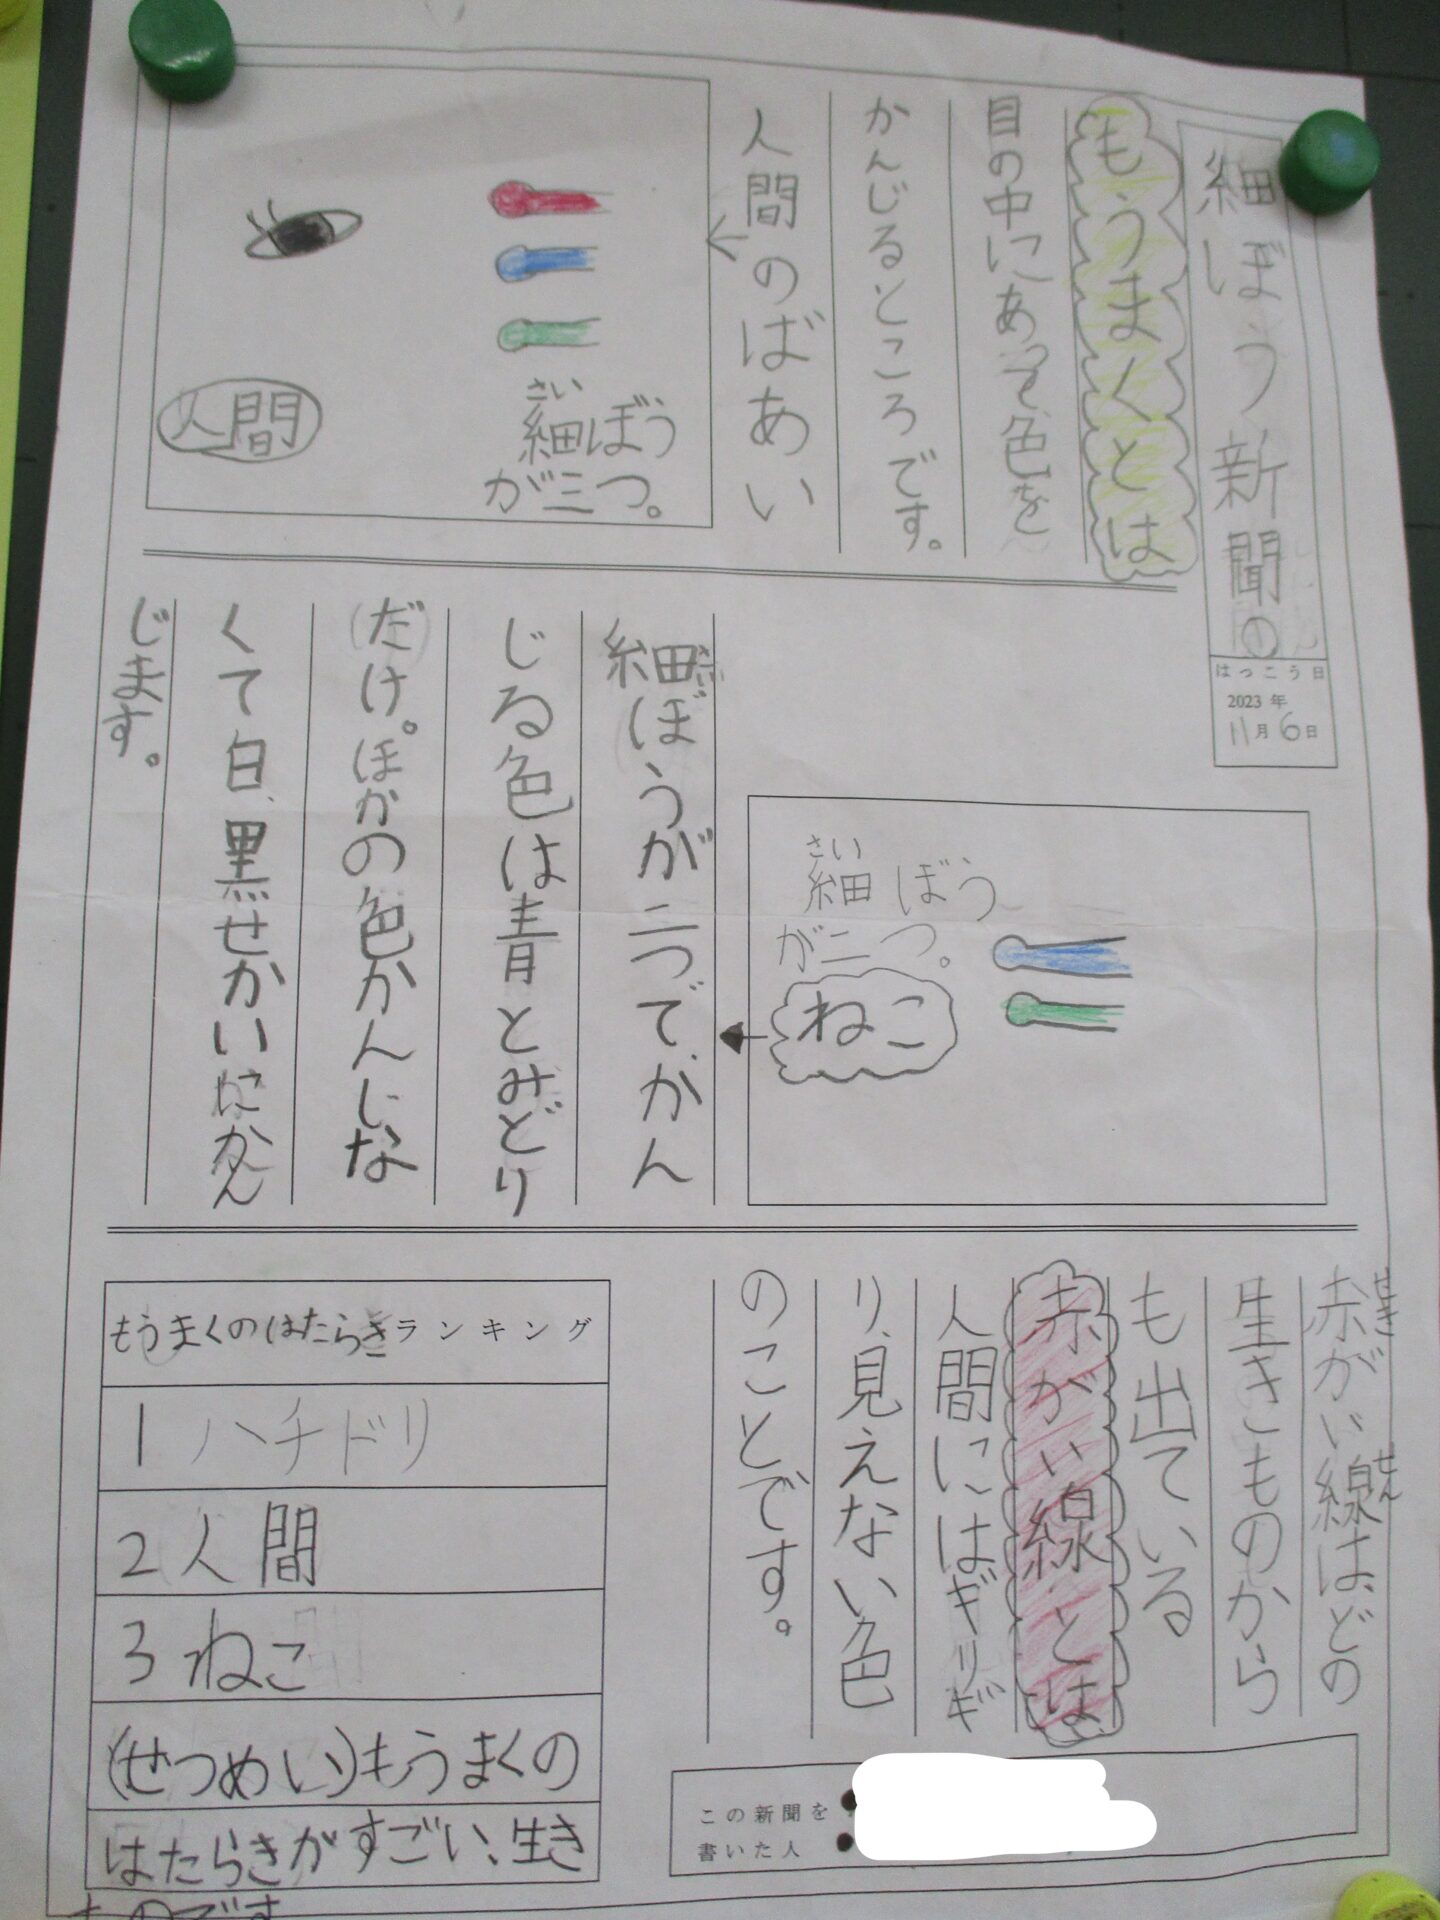 細ぼう新聞の
はっこう日
2023年
11月6日
もうまくとは
目の中にあって、色を
かんじるところです。
人間のばあい
さい
細ぼう
が三つ。
人間
さい
細ぼう
が二つ。
ねこ
細ぼうが二つで、かん
さい
じる色は青とみどり
だけ。ほかの色かんじな
くて白、黒せかいにかん
じます。
赤がい線は、どの
せき
せん
生きものから
も出ている
赤がい線とは、
人間にはギリギ
リ、見えない色
のことです。
もうまくのはたらきランキング
1 ハチドリ
2 人間
3 ねこ
(せつめい)もうまくの
はたらきがすごい、生き
ものです
この新聞を
書いた人